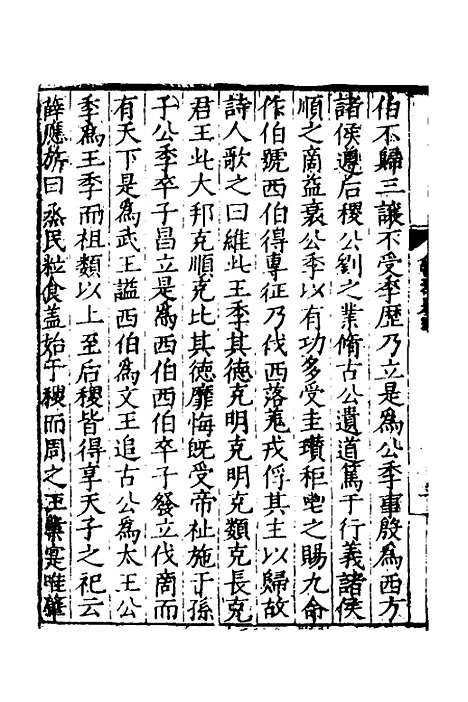 伯不歸三讓不受季歷乃立是爲公季事殷爲西方
諸侯遵后稷公劉之業脩古公遺道篤于行義諸侯
順之商益衰公季以有功多受圭瓚秬鬯之賜九命
作伯號西伯得專征乃伐西落鬼戎俘其主以歸故
詩人歌之曰維此王季其德克明克明克類克長克
君王此大邦克順克比其德靡悔既受帝祉施于孫
子公季卒子昌立是爲西伯西伯卒子發立伐商而
有天下是爲武王謚西伯爲文王追古公爲太王公
季爲王季而祖類以上至后稷皆得享天子之祀云
薛應旂曰烝民粒食盖始于稷而周之王業寔唯肇